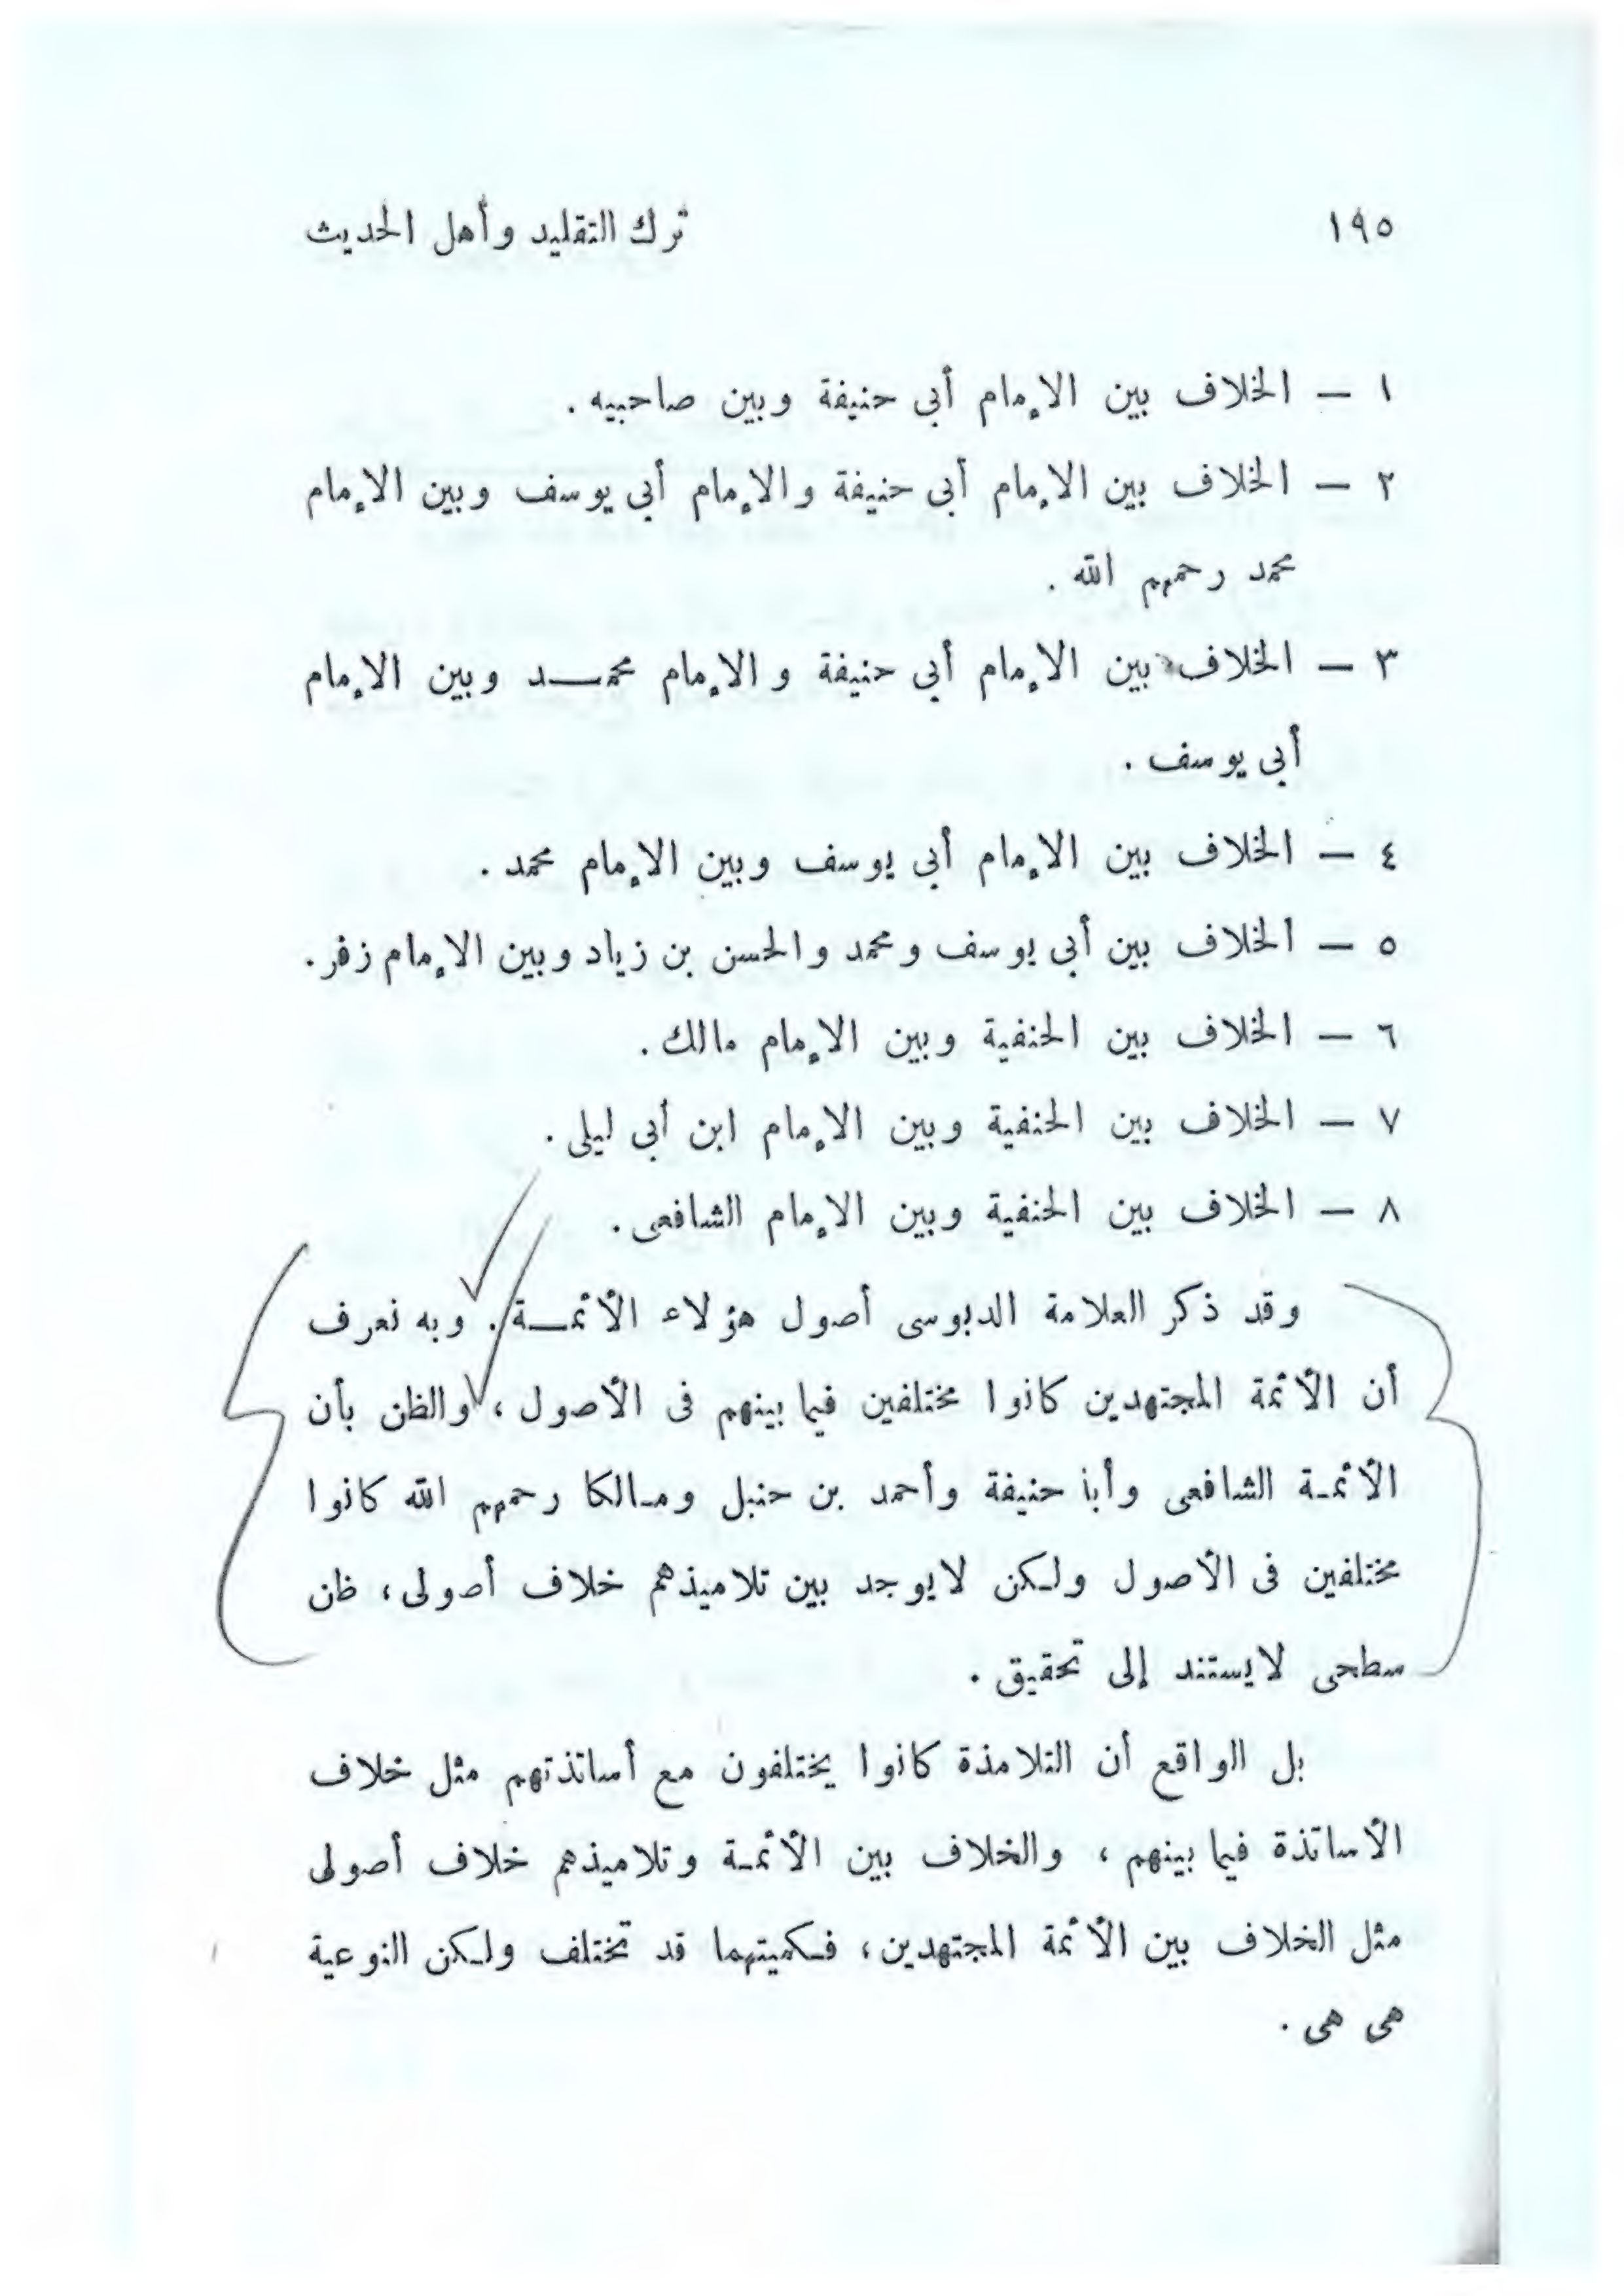 ١٩٥ ترك التقليد وأهل الحديث
١ — الخلاف بين الإمام أبى حنيفة وبين صاحبيه .
٢ — الخلاف بين الإمام أبى حنيفة والإمام أبى يوسف وبين الإمام
محمد رحمهم الله .
٣ — الخلاف بين الإمام أبى حنيفة والإمام محمـــد وبين الإمام
أبى يوسف .
٤ — الخلاف بين الإمام أبى يوسف وبين الإمام محمد .
٥ — الخلاف بين أبى يوسف ومحمد والحسن بن زياد وبين الإمام زفر .
٦ — الخلاف بين الحنفية وبين الإمام مالك .
٧ — الخلاف بين الحنفية وبين الإمام ابن أبى ليلى .
٨ — الخلاف بين الحنفية وبين الإمام الشافعى .
وقد ذكر العلامة الدبوسى أصول هؤلاء الأئمـــة . وبه نعرف
أن الأئمة المجتهدين كانوا مختلفين فيما بينهم فى الأصول ، والظن بأن
الأئمـة الشافعى وأبا حنيفة وأحمد بن حنبل ومـالكا رحمهم الله كانوا
مختلفين فى الأصول ولـكن لايوجد بين تلاميذهم خلاف أصولى ، ظن
سطحى لايستند إلى تحقيق .
بل الواقع أن التلامذة كانوا يختلفون مع أساتذتهم مثل خلاف
الأساتذة فيما بينهم ، والخلاف بين الأئمـة وتلاميذهم خلاف أصولى
مثل الخلاف بين الأئمة المجتهدين ، فـكميتهما قد تختلف ولـكن النوعية
هى هى .